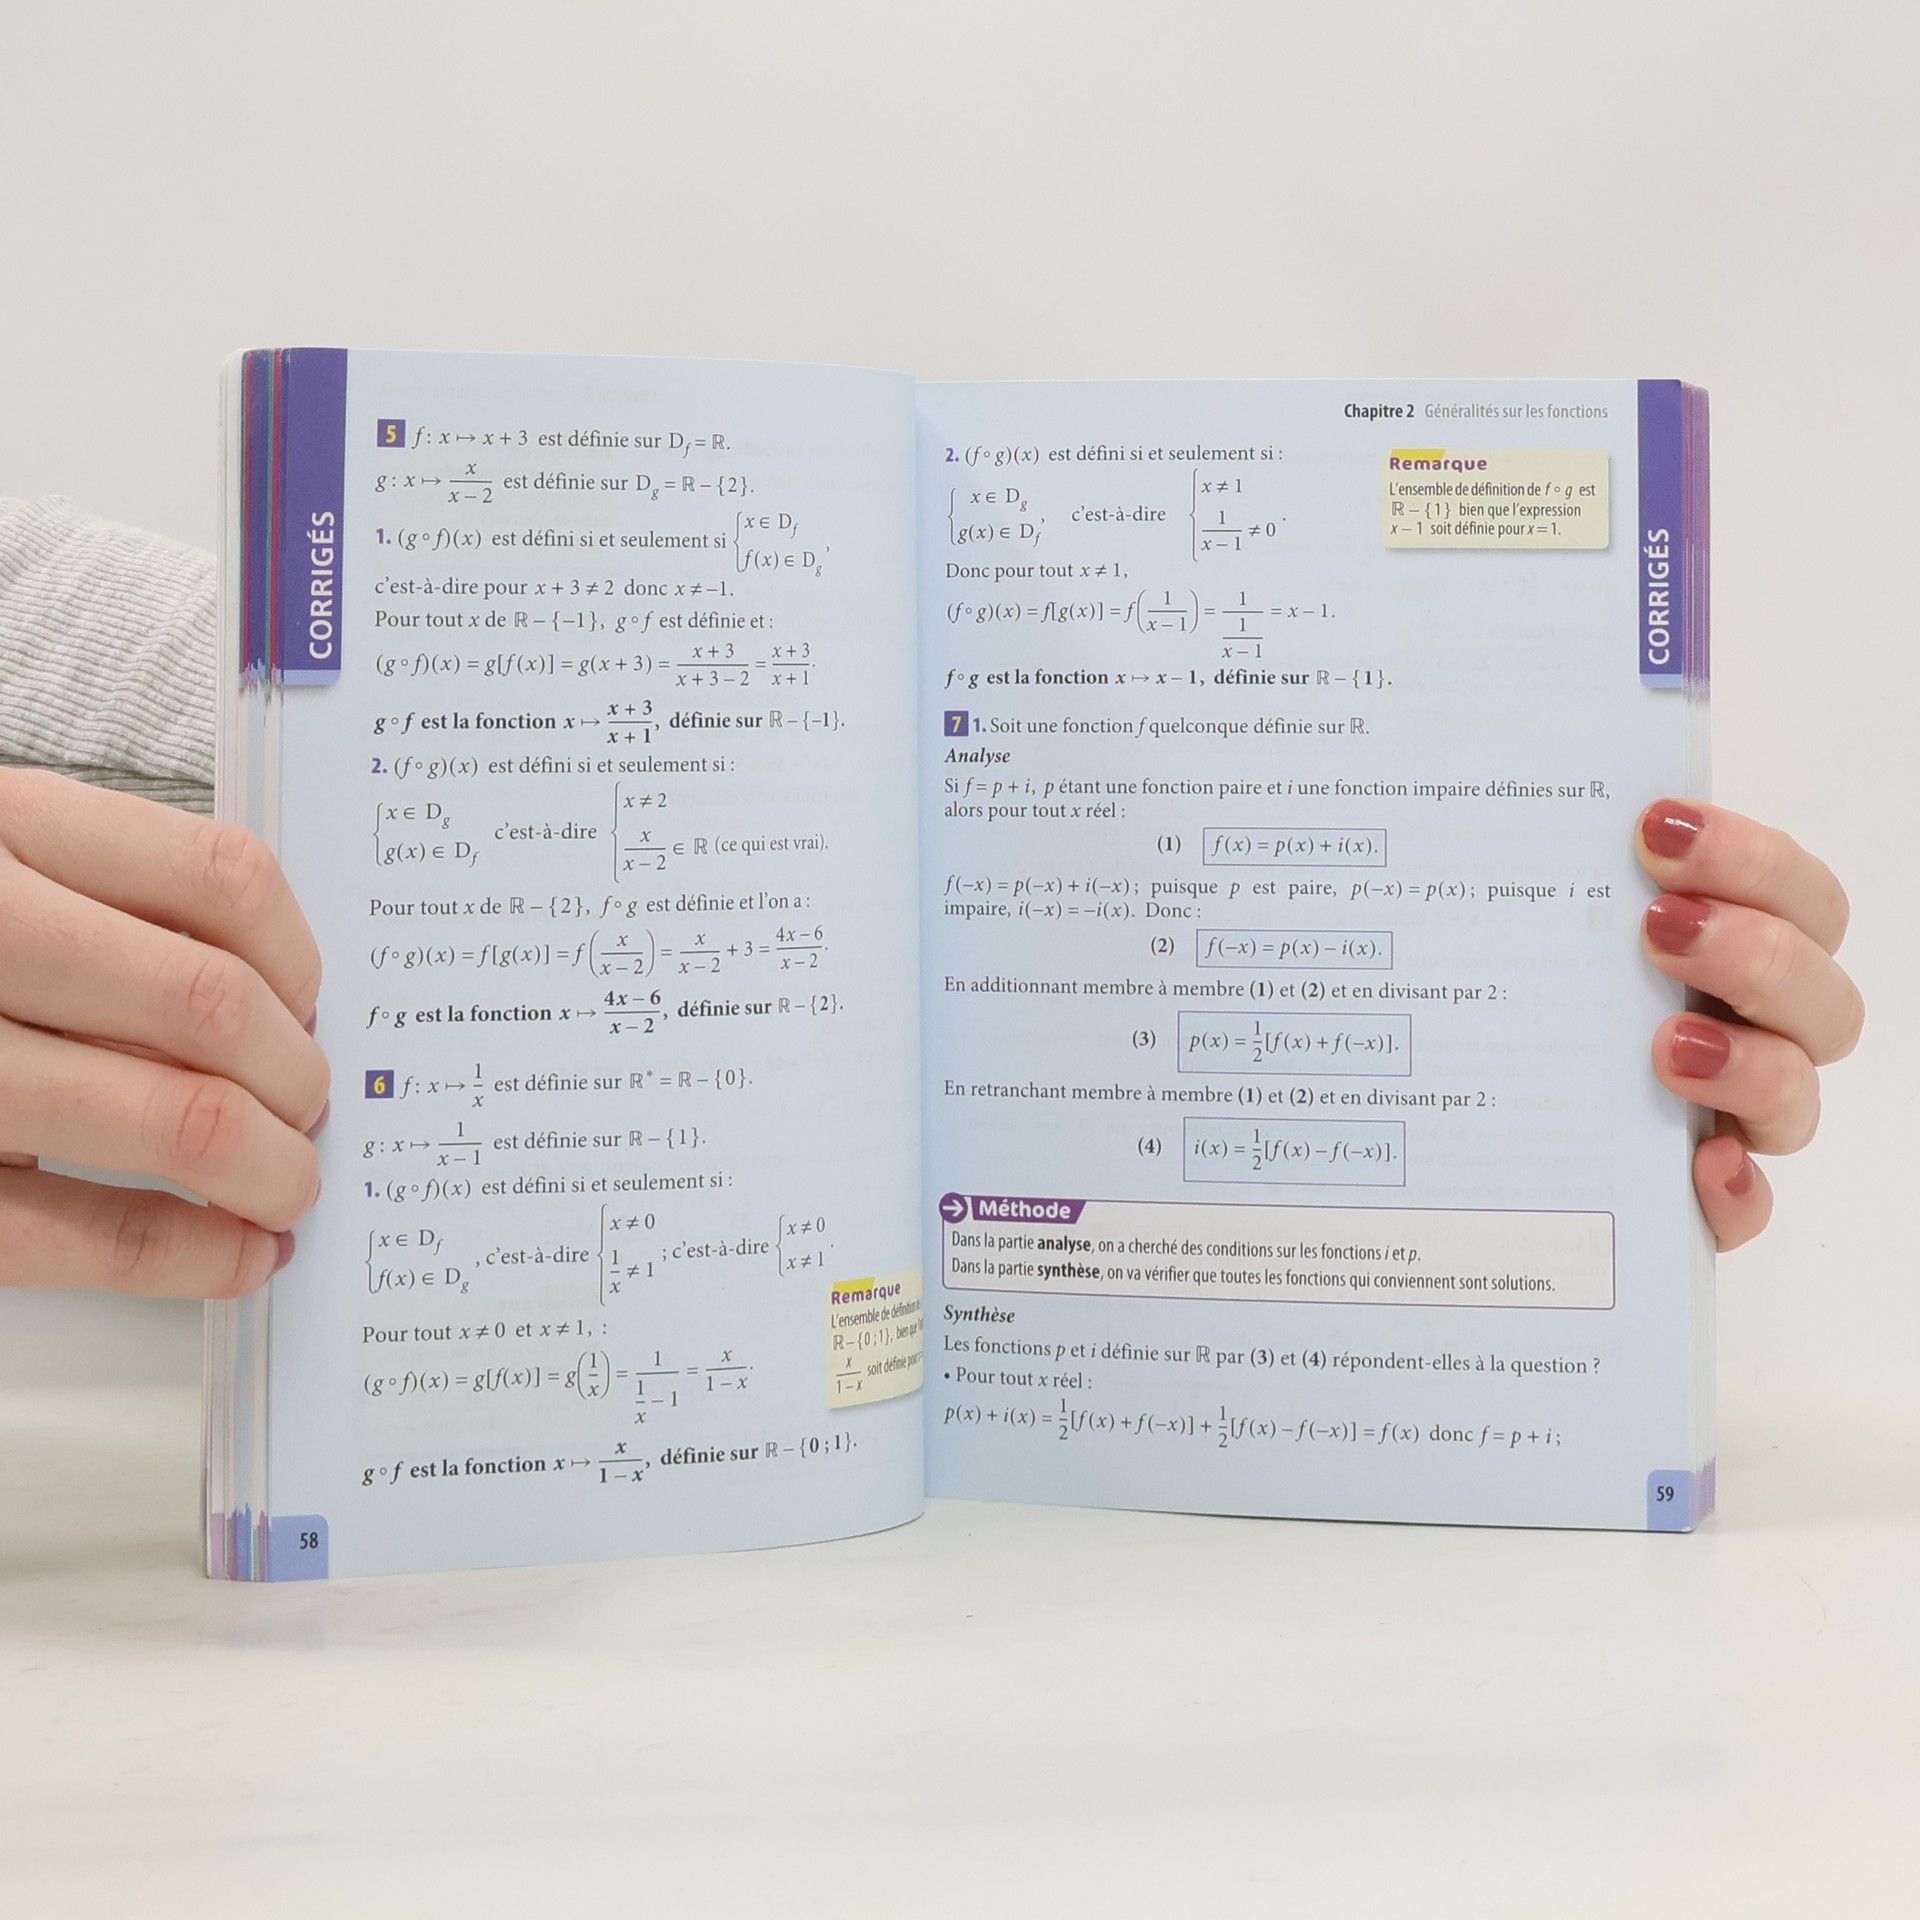 CORRIGÉS
5 f : x ↦ x + 3 est définie sur D_f = ℝ.
g : x ↦ x/(x − 2) est définie sur D_g = ℝ − {2}.
1. (g ∘ f)(x) est défini si et seulement si { x ∈ D_f ; f(x) ∈ D_g ,
c'est-à-dire pour x + 3 ≠ 2 donc x ≠ −1.
Pour tout x de ℝ − {−1}, g ∘ f est définie et :
(g ∘ f)(x) = g[f(x)] = g(x + 3) = (x + 3)/(x + 3 − 2) = (x + 3)/(x + 1).
g ∘ f est la fonction x ↦ (x + 3)/(x + 1), définie sur ℝ − {−1}.
2. (f ∘ g)(x) est défini si et seulement si :
{ x ∈ D_g ; g(x) ∈ D_f c'est-à-dire { x ≠ 2 ; x/(x − 2) ∈ ℝ (ce qui est vrai).
Pour tout x de ℝ − {2}, f ∘ g est définie et l'on a :
(f ∘ g)(x) = f[g(x)] = f(x/(x − 2)) = x/(x − 2) + 3 = (4x − 6)/(x − 2).
f ∘ g est la fonction x ↦ (4x − 6)/(x − 2), définie sur ℝ − {2}.
6 f : x ↦ 1/x est définie sur ℝ* = ℝ − {0}.
g : x ↦ 1/(x − 1) est définie sur ℝ − {1}.
1. (g ∘ f)(x) est défini si et seulement si :
{ x ∈ D_f ; f(x) ∈ D_g , c'est-à-dire { x ≠ 0 ; 1/x ≠ 1 ; c'est-à-dire { x ≠ 0 ; x ≠ 1 .
Pour tout x ≠ 0 et x ≠ 1, :
(g ∘ f)(x) = g[f(x)] = g(1/x) = 1/(1/x − 1) = x/(1 − x).
g ∘ f est la fonction x ↦ x/(1 − x), définie sur ℝ − {0 ; 1}.
Remarque
L'ensemble de définition
ℝ − {0 ; 1}, bien que
x/(1 − x) soit définie
58
Chapitre 2 Généralités sur les fonctions
CORRIGÉS
2. (f ∘ g)(x) est défini si et seulement si :
{ x ∈ D_g ; g(x) ∈ D_f , c'est-à-dire { x ≠ 1 ; 1/(x − 1) ≠ 0 .
Donc pour tout x ≠ 1,
(f ∘ g)(x) = f[g(x)] = f(1/(x − 1)) = 1/(1/(x − 1)) = x − 1.
f ∘ g est la fonction x ↦ x − 1, définie sur ℝ − {1}.
Remarque
L'ensemble de définition de f ∘ g est
ℝ − {1} bien que l'expression
x − 1 soit définie pour x = 1.
7 1. Soit une fonction f quelconque définie sur ℝ.
Analyse
Si f = p + i, p étant une fonction paire et i une fonction impaire définies sur ℝ,
alors pour tout x réel :
(1) f(x) = p(x) + i(x).
f(−x) = p(−x) + i(−x) ; puisque p est paire, p(−x) = p(x) ; puisque i est
impaire, i(−x) = −i(x). Donc :
(2) f(−x) = p(x) − i(x).
En additionnant membre à membre (1) et (2) et en divisant par 2 :
(3) p(x) = 1/2 [f(x) + f(−x)].
En retranchant membre à membre (1) et (2) et en divisant par 2 :
(4) i(x) = 1/2 [f(x) − f(−x)].
Méthode
Dans la partie analyse, on a cherché des conditions sur les fonctions i et p.
Dans la partie synthèse, on va vérifier que toutes les fonctions qui conviennent sont solutions.
Synthèse
Les fonctions p et i définie sur ℝ par (3) et (4) répondent-elles à la question ?
• Pour tout x réel :
p(x) + i(x) = 1/2 [f(x) + f(−x)] + 1/2 [f(x) − f(−x)] = f(x) donc f = p + i ;
59